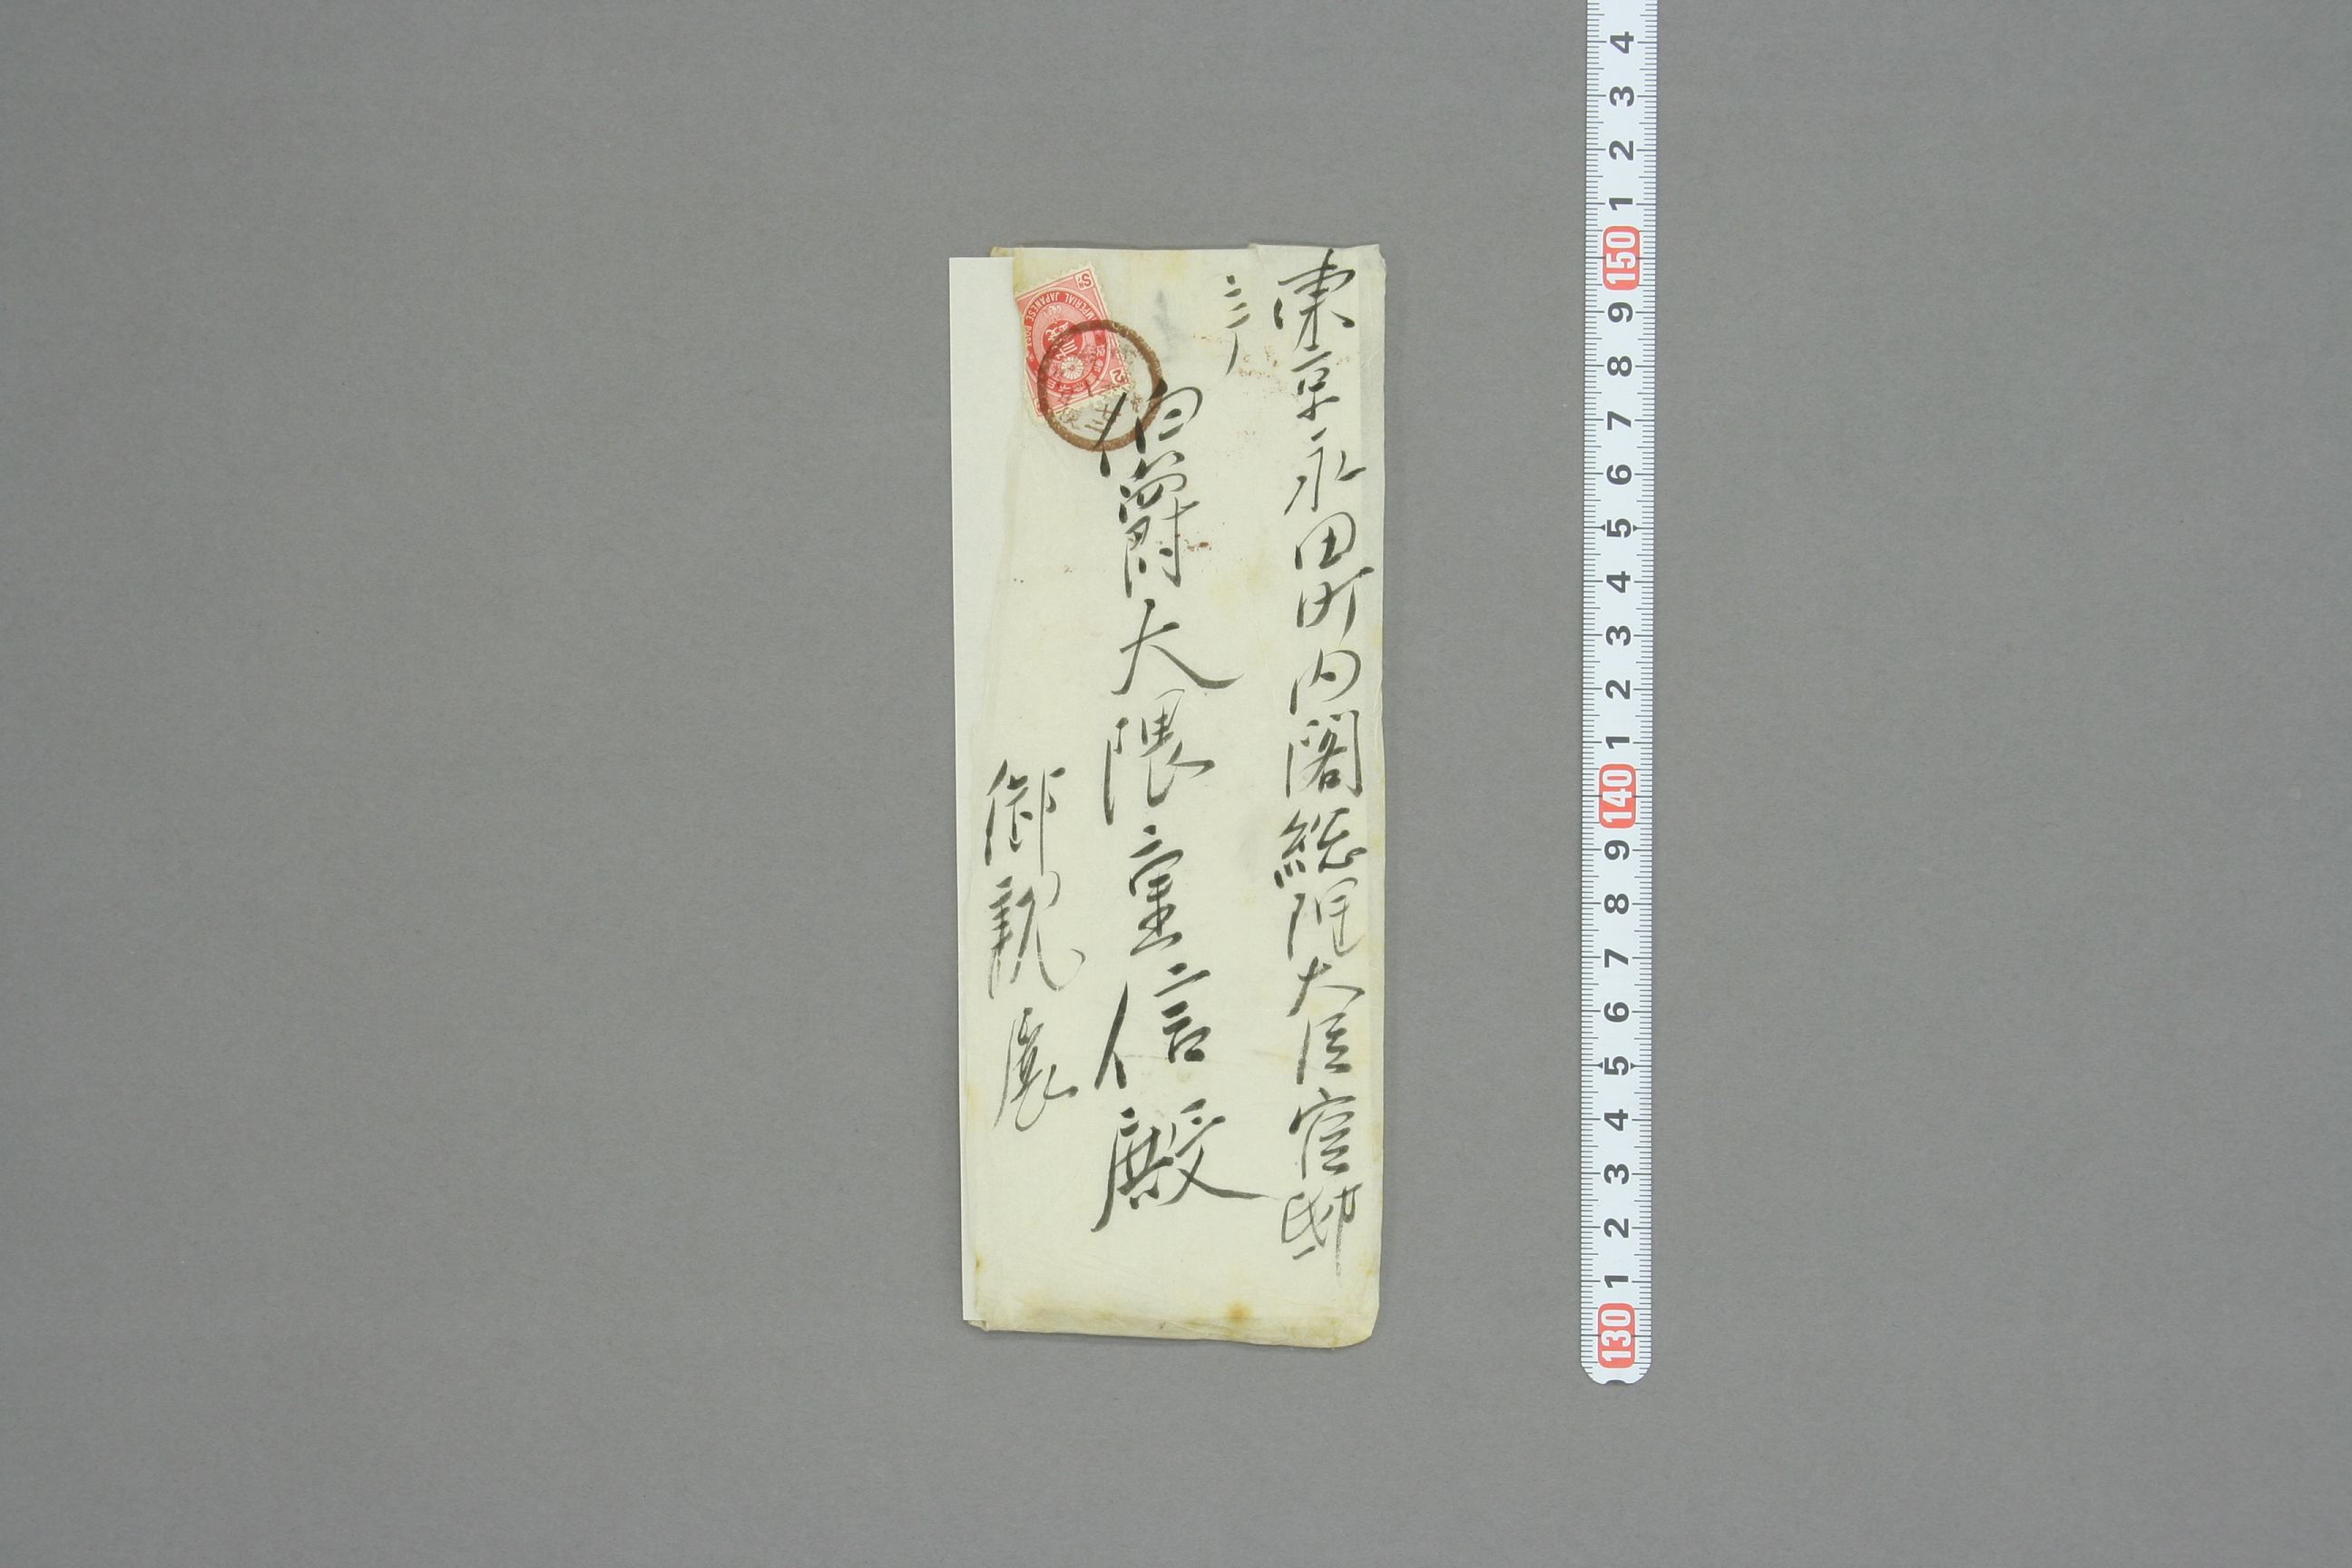 東京永田町内閣総理大臣官邸
伯爵大隈重信殿
御親展
IMPERIAL JAPANESE POST
2 SN
4
3
2
1
150
9
8
7
6
5
4
3
2
1
140
9
8
7
6
5
4
3
2
1
130